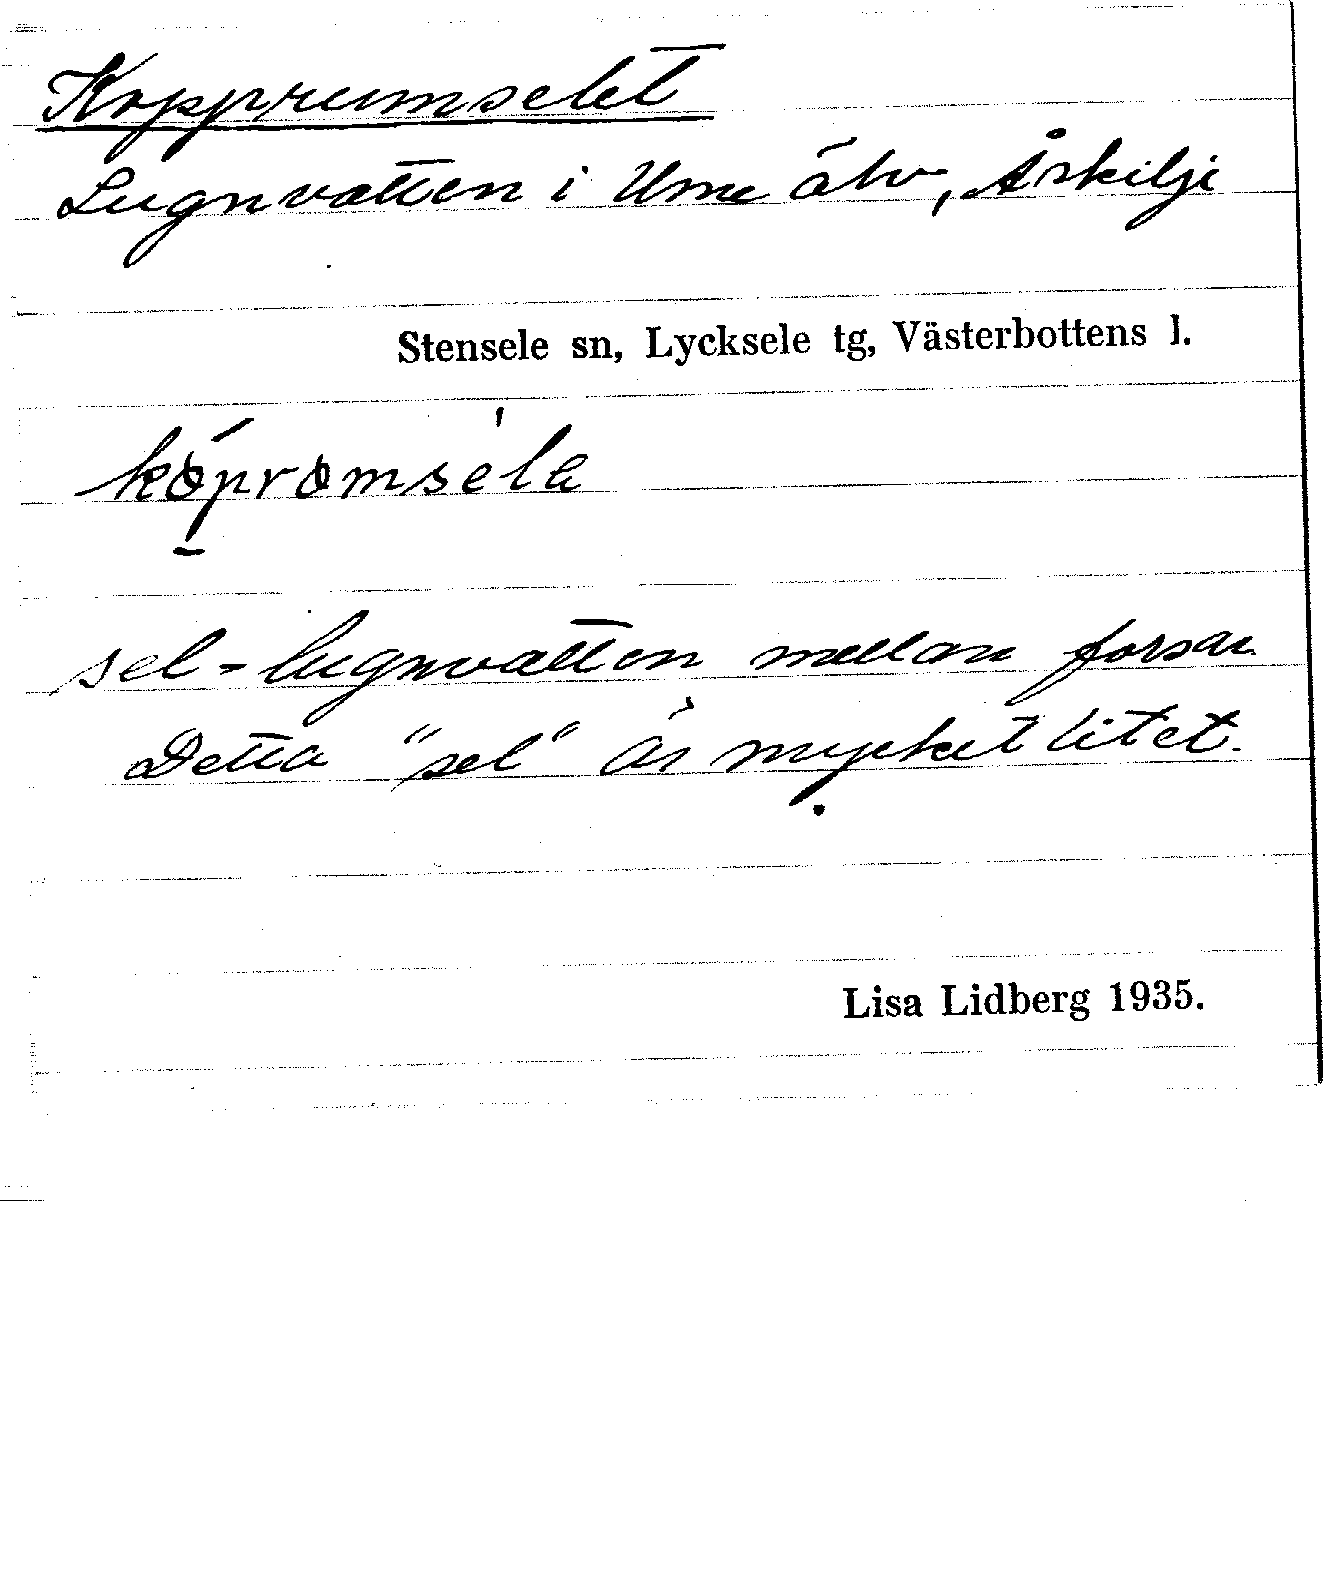 Kopprumselet
Lugnvatten i Ume älv, Åskilje
Stensele sn, Lycksele tg, Västerbottens l.
kòpromséla
sel = lugnvatten mellan forsar
Detta "sel" är mycket litet.
Lisa Lidberg 1935.